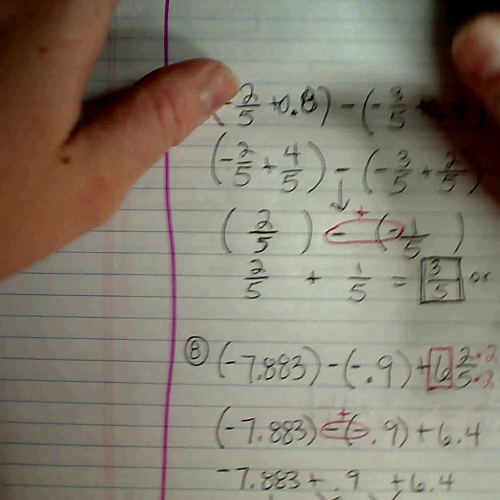 (-2/5 + 0.8) - (-3/5
(-2/5 + 4/5) - (-3/5 + 2/5)
+
(2/5) - (-1/5)
2/5 + 1/5 = 3/5 or
8 (-7.883) - (-.9) + 6 2/5 •2 •2
+
(-7.883) - (-.9) + 6.4
-7.883 + .9 + 6.4